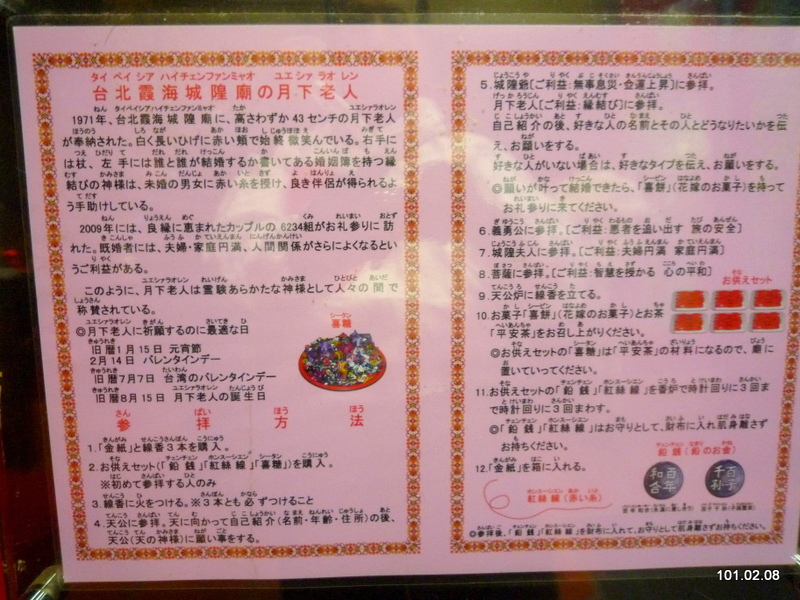 タイ ペイ シア ハイチェンファンミャオ ユエシァ ラオ レン
台北霞海城隍廟の月下老人
1971年、台北霞海城隍廟に、高さわずか43センチの月下老人
が奉納された。白く長いひげに赤い頬で始終微笑んでいる。右手に
は杖、左手には誰と誰が結婚するか書いてある婚姻簿を持つ縁
結びの神様は、未婚の男女に赤い糸を授け、良き伴侶が得られるよ
う手助けしている。
2009年には、良縁に恵まれたカップルの6234組がお礼参りに訪
れた。既婚者には、夫婦・家庭円満、人間関係がさらによくなるとい
うご利益がある。
このように、月下老人は霊験あらたかな神様として人々の間で
称賛されている。
◎月下老人に祈願するのに最適な日
旧暦1月15日 元宵節
2月14日 バレンタインデー
旧暦7月7日 台湾のバレンタインデー
旧暦8月15日 月下老人の誕生日
シータン
喜糖
さん ぱい ほう ほう
参拝方法
1.「金紙」と線香3本を購入。
2.お供えセット(「鉛銭」「紅絲線」「喜糖」)を購入。
※初めて参拝する人のみ
3.線香に火をつける。※3本とも必ずつけること
4.天公に参拝。天に向かって自己紹介(名前・年齢・住所)の後、
天公(天の神様)に願い事をする。
5.城隍爺[ご利益:無事息災・金運上昇]に参拝。
月下老人[ご利益:縁結び]に参拝。
自己紹介の後、好きな人の名前とその人とどうなりたいかを伝
え、お願いをする。
好きな人がいない場合は、好きなタイプを伝え、お願いをする。
◎願いが叶って結婚できたら、「喜餅」(花嫁のお菓子)を持って
お礼参りに来てください。
6.義勇公に参拝。[ご利益:悪者を追い出す 旅の安全]
7.城隍夫人に参拝。[ご利益:夫婦円満 家庭円満]
8.菩薩に参拝。[ご利益:智慧を授かる 心の平和]
お供えセット
9.天公炉に線香を立てる。
10.お菓子「喜餅」(花嫁のお菓子)とお茶
「平安茶」をお召し上がりください。
◎お供えセットの「喜糖」は「平安茶」の材料になるので、廟に
置いていってください。
11.お供えセットの「鉛銭」「紅絲線」を香炉で時計回りに3回ま
で時計回りに3回まわす。
◎「鉛銭」「紅絲線」はお守りとして、財布に入れ肌身離さず
お持ちください。
12.「金紙」を箱に入れる。
鉛銭(鉛のお金)
紅絲線(赤い糸)
百年和合
千子百孫
◎参拝後、「鉛銭」「紅絲線」を財布に入れて、お守りとして肌身離さずお持ちください。
101.02.08